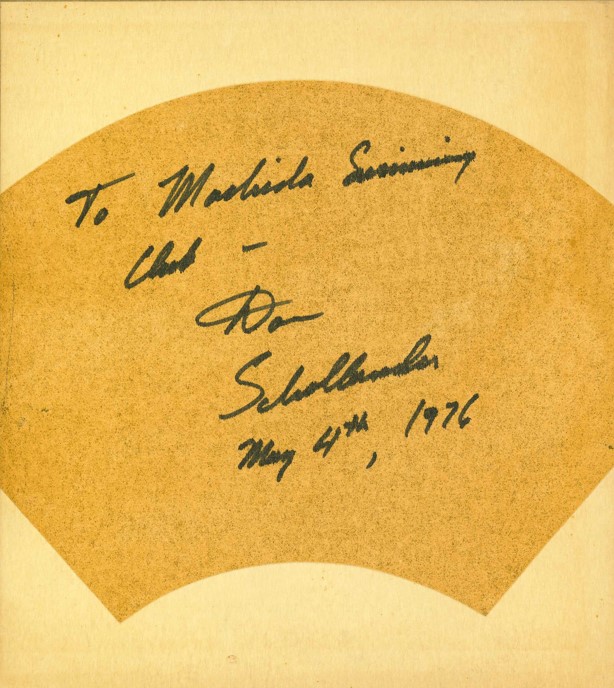 To Machida Swimming
Club –
Don
Schollander
May 4th, 1976